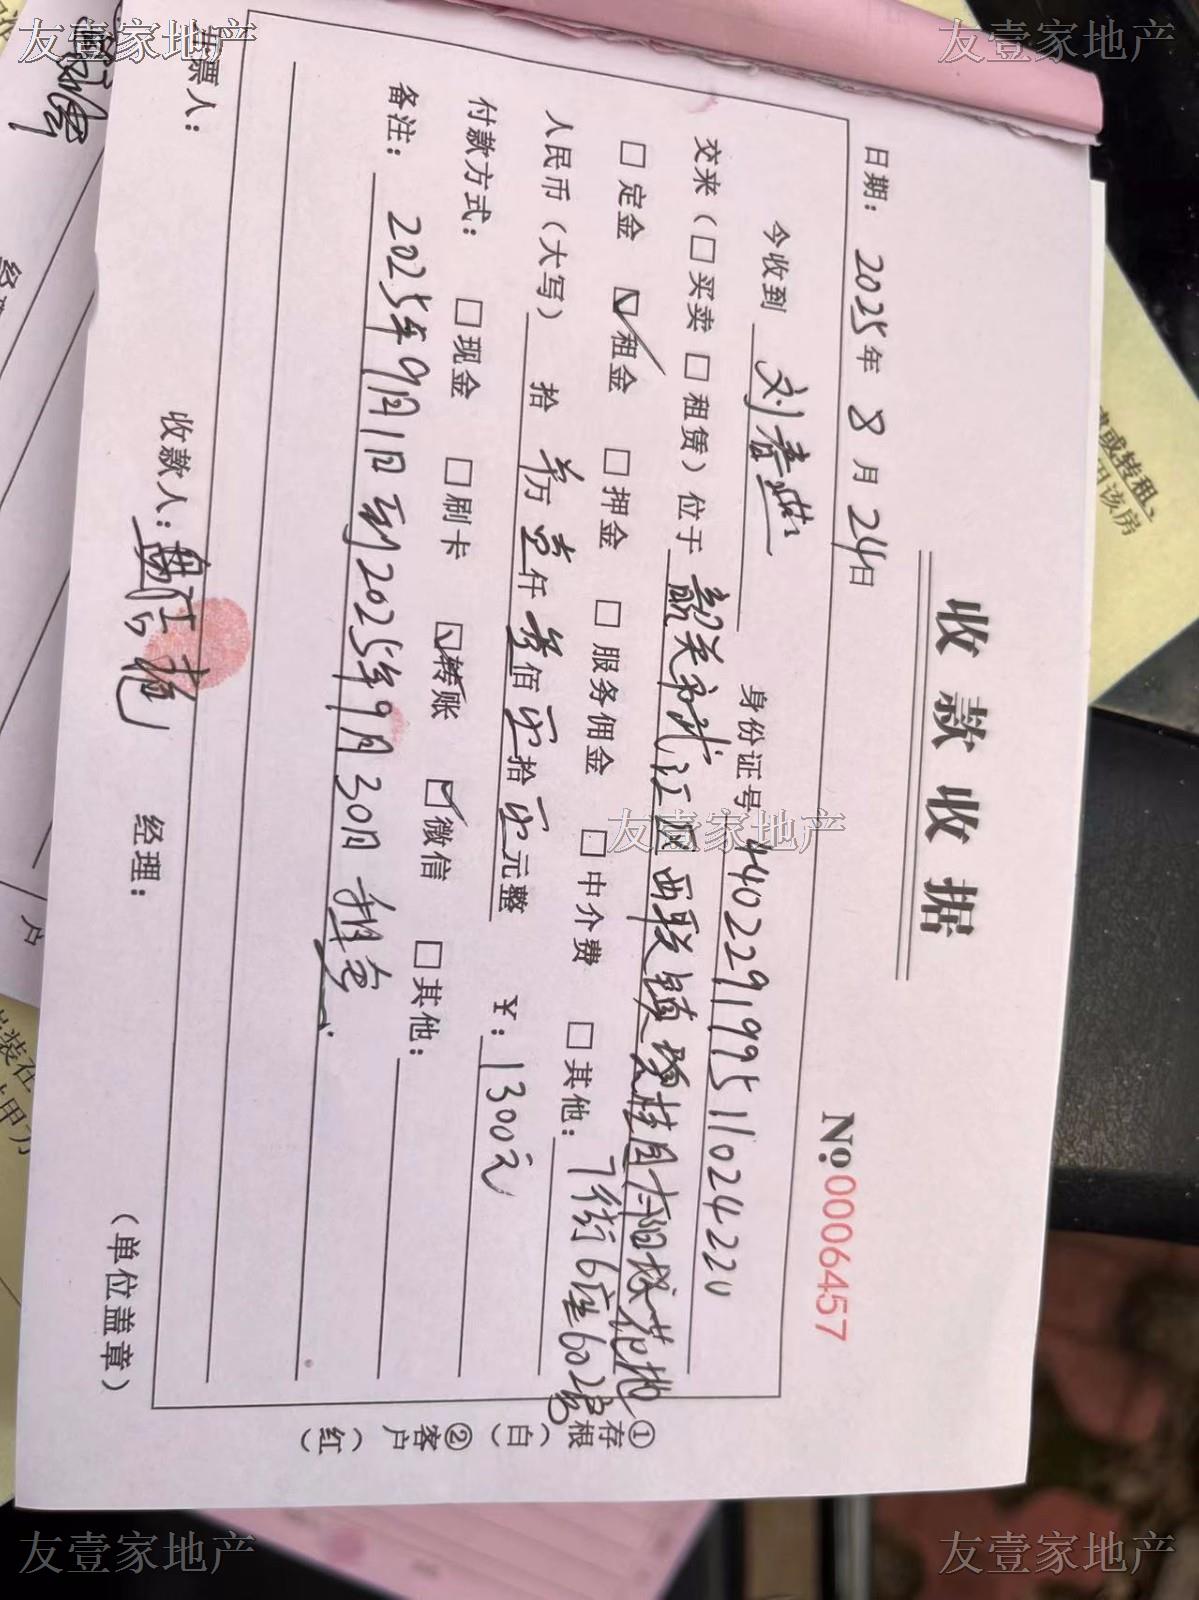 收款收据
No.0006457
日期：2025年8月24日
今收到 刘春燕 身份证号 440229199511024220
交来（□买卖 □租赁）位于 韶关市武江区西联镇芙桂园太阳城花地
□定金 ☑租金 □押金 □服务佣金 □中介费 □其他：7街6座602房
人民币（大写） 拾 万壹仟叁佰零拾零元整 ¥：1300元
付款方式：□现金 □刷卡 ☑转账 ☑微信 □其他：
备注：2025年9月1日到2025年9月30日租金
开票人： 收款人： 经理： （单位盖章）
①存根（白） ②客户（红）
或转租、
用该房
户
经
装在
甲方
友壹家地产
友壹家地产
友壹家地产
友壹家地产
友壹家地产